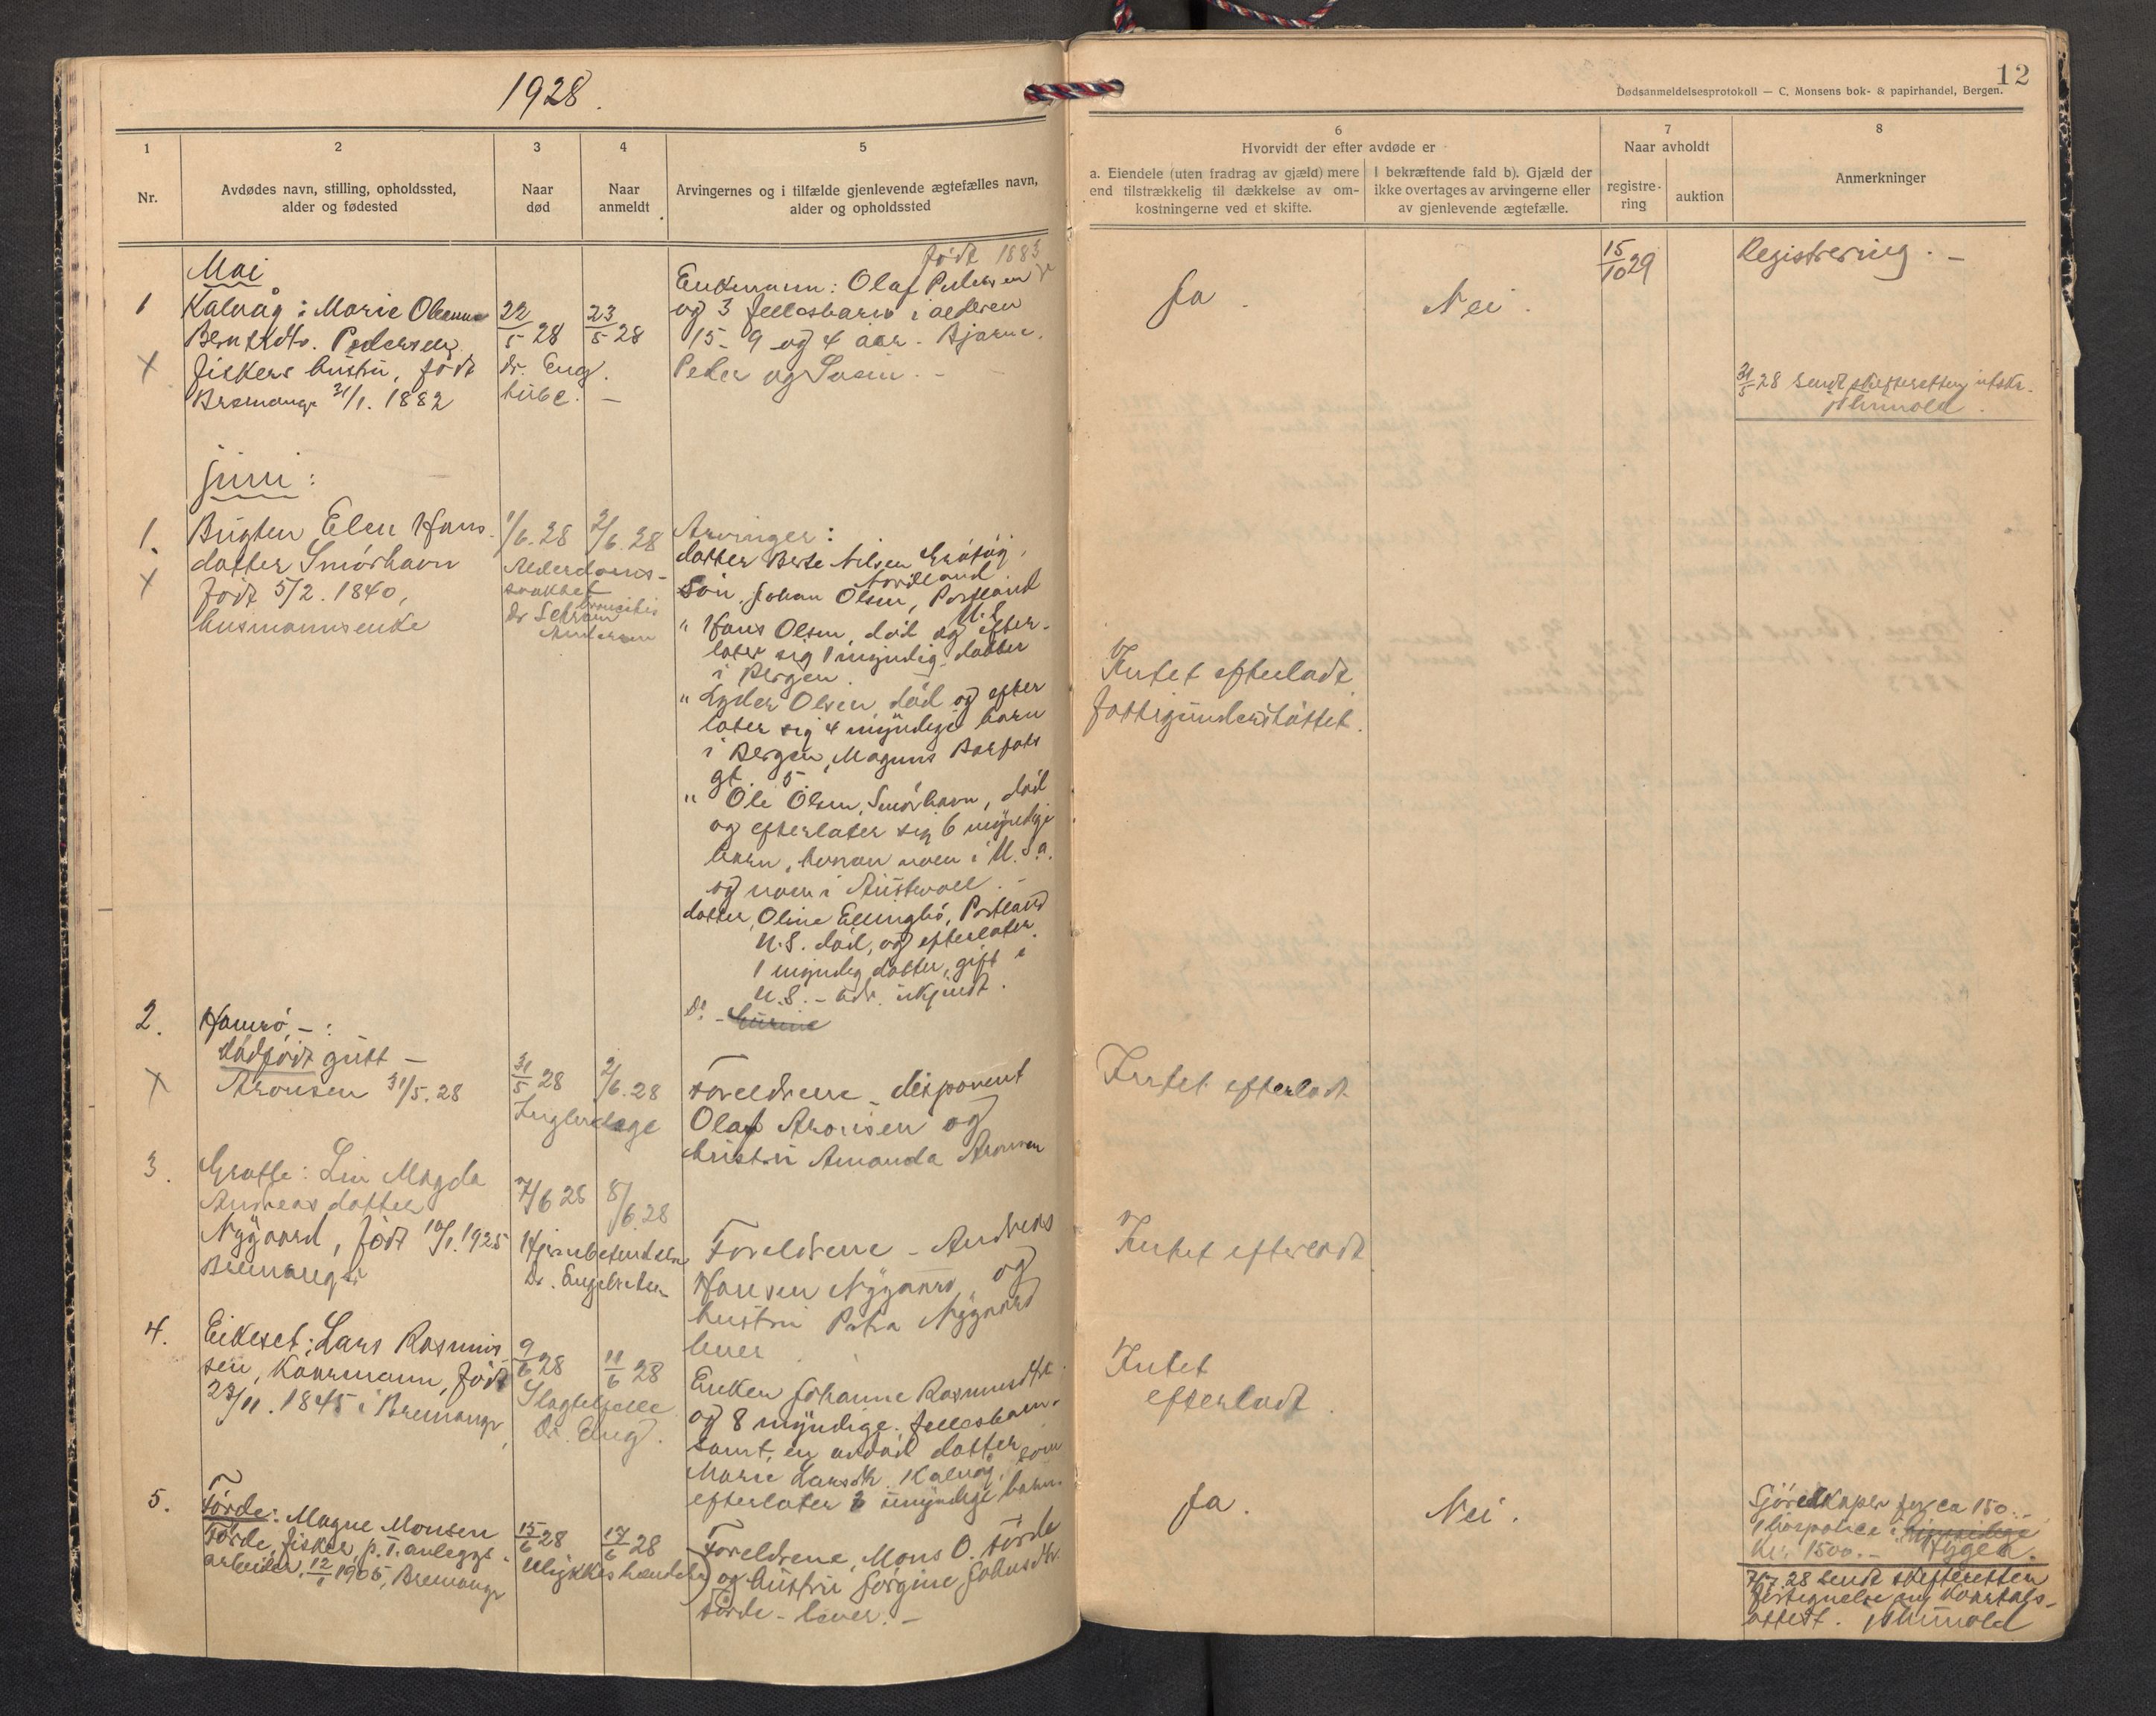 1928.
12
Dødsanmeldelsesprotokoll — C. Monsens bok- & papirhandel, Bergen.
1
Nr.
2
Avdødes navn, stilling, opholdssted,
alder og fødested
3
Naar
død
4
Naar
anmeldt
5
Arvingernes og i tilfælde gjenlevende ægtefælles navn,
alder og opholdssted
6
Hvorvidt der efter avdøde er
a. Eiendele (uten fradrag av gjæld) mere
end tilstrækkelig til dækkelse av om-
kostningerne ved et skifte.
I bekræftende fald b). Gjæld der
ikke overtages av arvingerne eller
av gjenlevende ægtefælle.
7
Naar avholdt
registre-
ring
auktion
8
Anmerkninger
Mai
1
X
Kalvåg: Marie Oleanna
Berntsdtr. Pedersen
fiskers hustru, født
Bremanger 21/1. 1882
22/5 28
dr. Eng.
tube. –
23/5 28
født 1883
Enkemann: Olaf Pedersen
og 3 fellesbarn i alderen
15 - 9 og 4 aar. Bjarne,
Peder og
Ja.
Nei.
15/10 29
Registrering. –
31/5 28 sendt skifteretten utskr.
juni:
1.
X
Bugten Elen Hans-
datter Smörhavn
født 5/2. 1840,
husmannsenke
1/6. 28
Alderdoms-
svakhet
broncitis
Dr
Andersen
2/6. 28
Arvinger:
datter Berte Nilsen
Nordland
Sön Johan Olsen, Portland
U.S.
" Hans Olsen, död og efter-
later sig 1 myndig datter
i Bergen.
" Lyder Olsen död og efter
later sig 4 myndige barn
i Bergen, Magnus Barfots
gt. 5
" Ole Olsen, Smörhavn, död
og efterlater sig 6 myndige
barn, hvorav noen i U.S.a.
og noen i Austevoll. –
datter, Oline Ellingbö, Portland
U.S. död, og efterlater
1 myndig datter, gift i
U.S. – adr. ukjendt.
Intet efterladt
fattigunderstöttet.
2.
X
Hamrö –:
dödfödt gutt –
Aronsen 31/5. 28
31/5 28
2/6. 28
Foreldrene – disponent
Olaf Aronsen og
hustru Amanda Aronsen
Intet efterladt
3.
Grotle: Liv Magda
Andreasdatter
Nygaard, født 10/1. 1925
Bremanger
7/6 28
Hjernebetendelse
Dr. Engebretsen
8/6. 28
Foreldrene – Andreas
Hansen Nygaard og
hustru Petra Nygaard
lever
Intet efterladt
4.
Eikeset: Lars Rasmus
sen, Kaarmann, født
23/11. 1845 i Bremanger
9/6 28
Slagtilfelle
Dr. Eng.
11/6 28
Enken Johanne Rasmusdtr.
og 8 myndige fellesbarn.
samt en avdöd datter
Marie Larsdtr. Kalvåg, som
efterlater 3 umyndige barn.
Intet
efterladt.
5.
Förde: Magne Monsen
Förde, fisker p.t. anleggs-
arbeider, 12/1 1905, Bremanger
15/6 28
Ulykkeshendelse
17/6 28
Foreldrene, Mons O. Förde
og hustru Jörgine Johnsdtr.
Förde – lever. –
Ja.
Nei.
Sjöredskaper for ca 150.–
1 livspolice i
Kr. 1500.– "Hygea".
7/7. 28 sendt skifteretten
fortegnelse
attest.